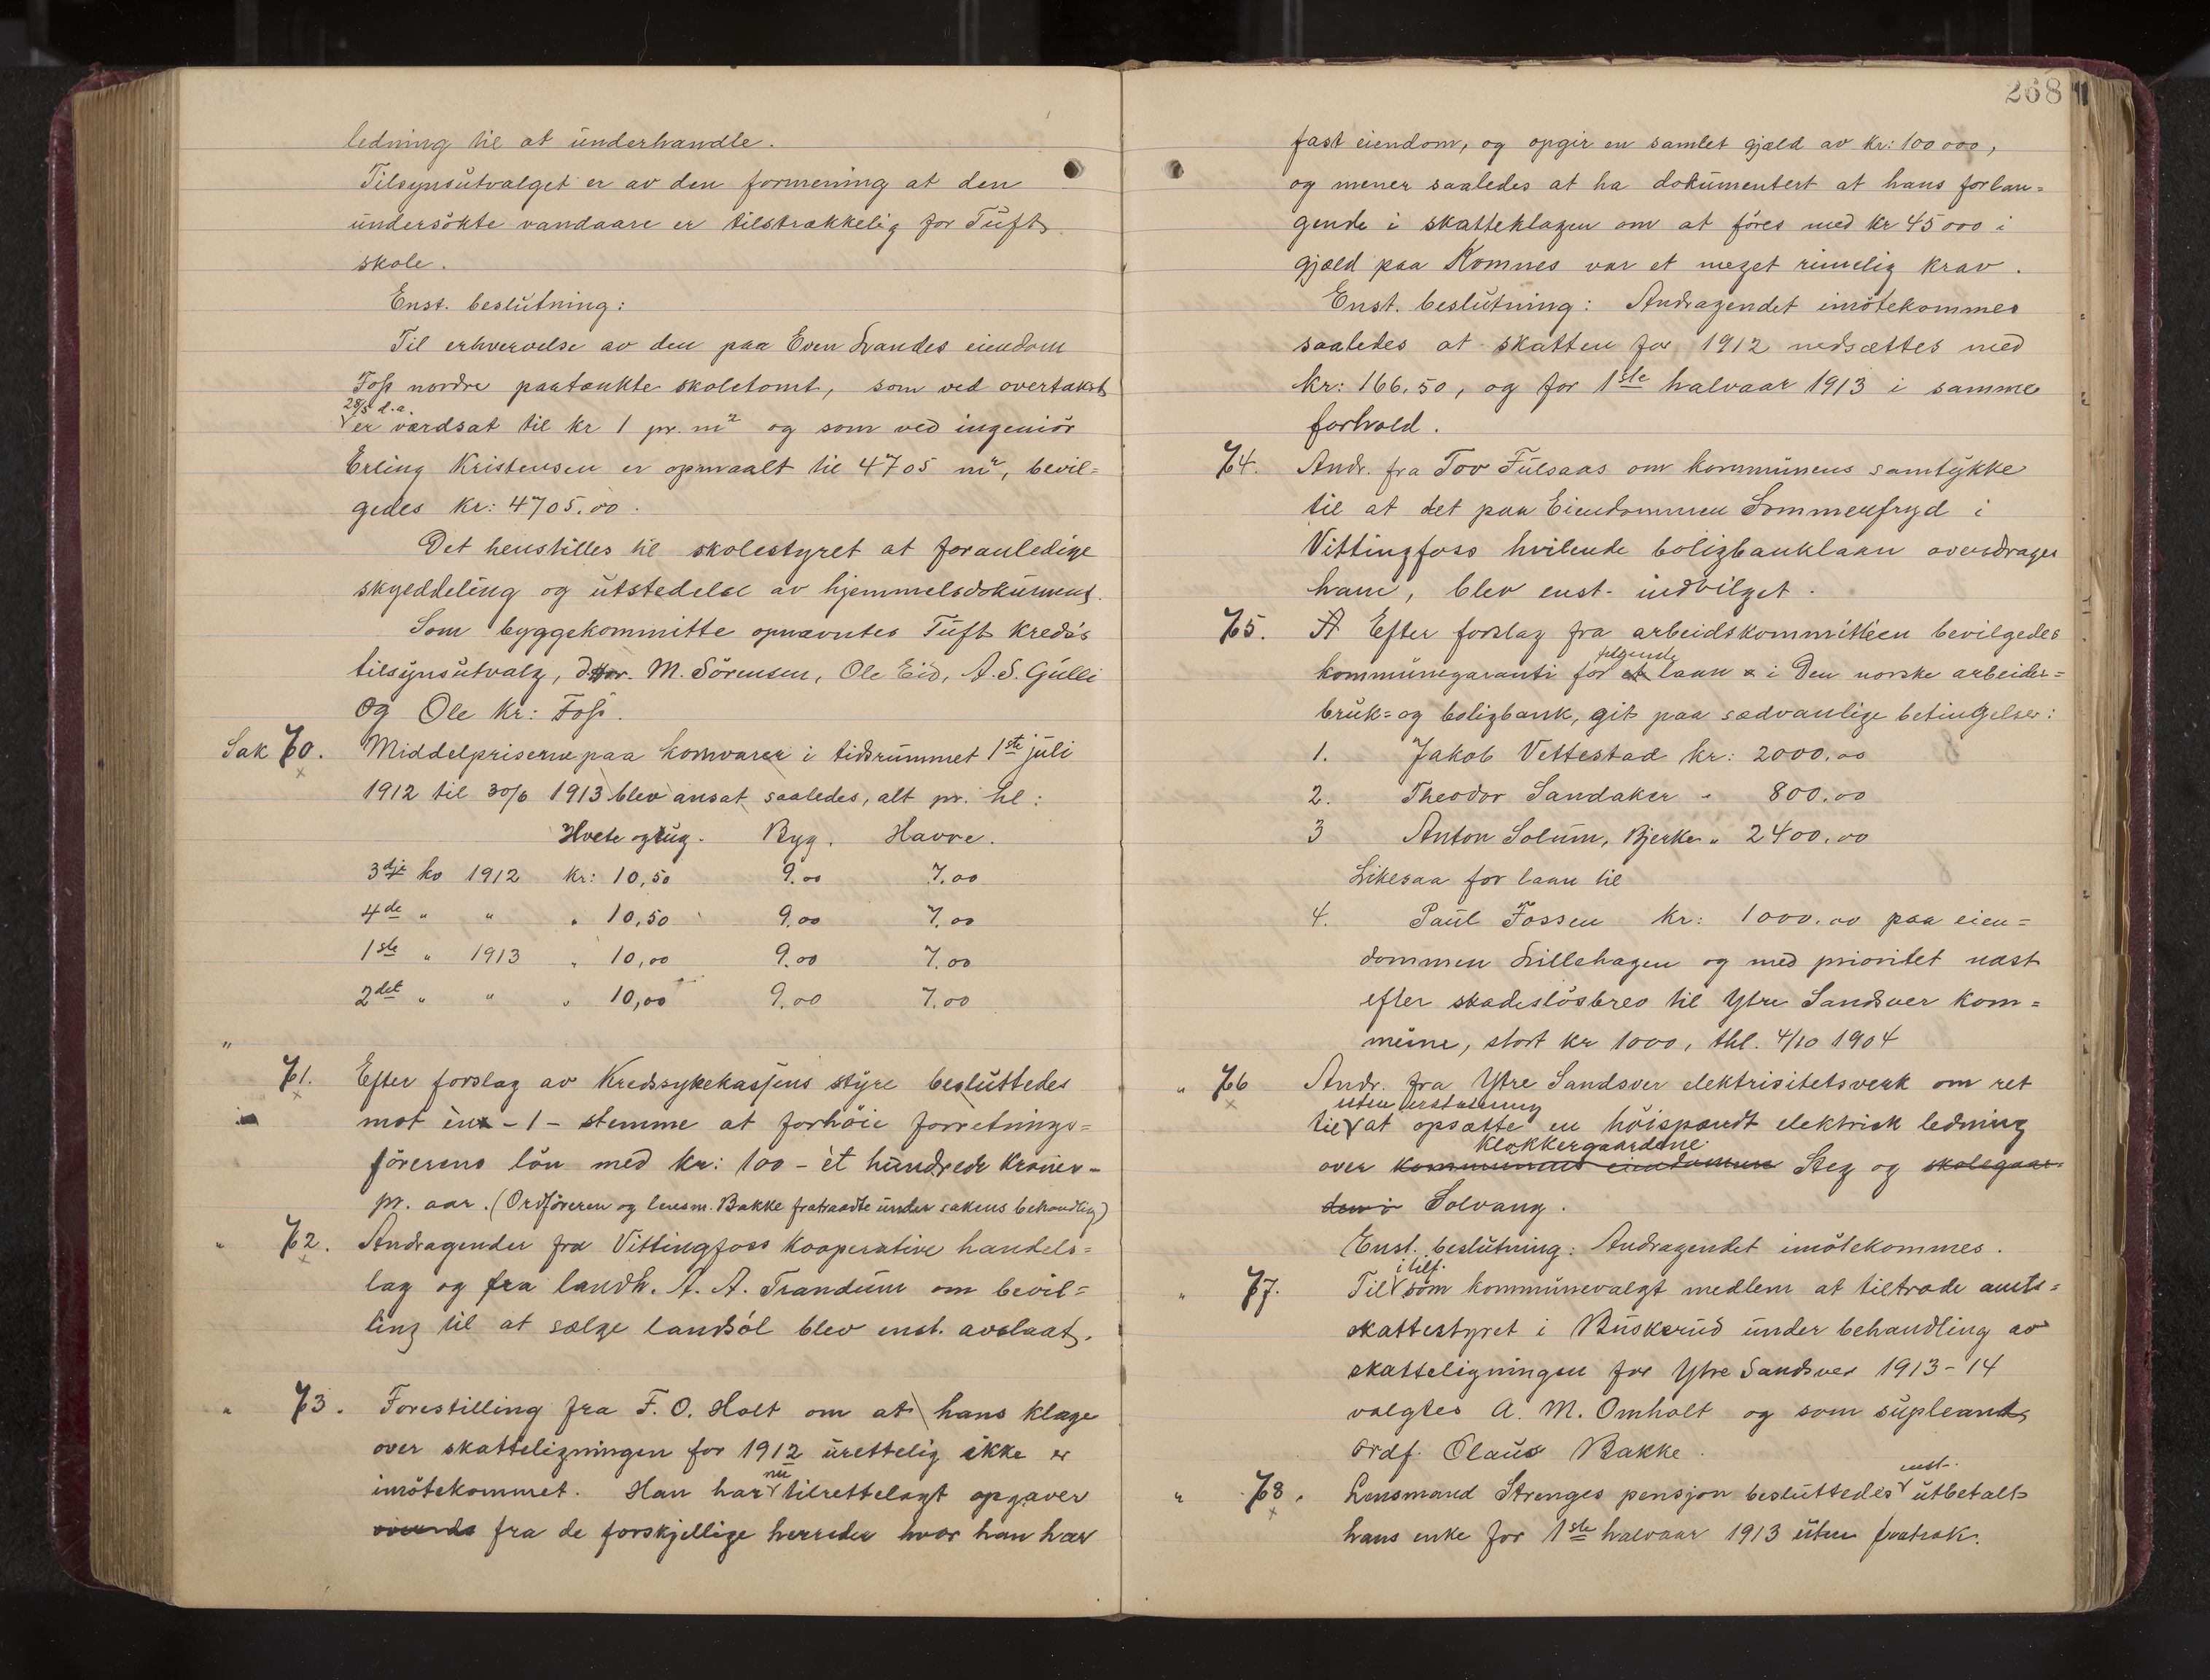 ledning til at underhandle.
Tilsynsutvalget er av den formening at den
undersökte vandaare er tilstrækkelig for Tuft
skole.
Enst. beslutning:
Til erhvervelse av den paa Even Landes eiendom
Foss nordre paatænkte skoletomt, som ved overtakst
28/5 d.a.
er værdsat til kr 1 pr. m² og som ved ingeniör
Erling Kristensen er opmaalt til 4705 m², bevil=
gedes kr: 4705.00.
Det henstilles til skolestyret at foranledige
skylddeling og utstedelse av hjemmelsdokument.
Som byggekommitte opnævntes Tuft kreds's
tilsynsutvalg, dhrr. M. Sörensen, Ole Eid, A. S. Gulli
og Ole Kr: Foss.
Sak 70. Middelpriserne paa kornvarer i tidsrummet 1ste juli
1912 til 30/6 1913 blev ansat saaledes, alt pr. hl:
Hvete og rug. Byg. Havre.
3dje kv 1912 kr: 10,50 9.00 7.00
4de " " " 10,50 9.00 7.00
1ste " 1913 " 10,00 9.00 7.00
2det " " " 10,00 9.00 7.00
"
71. Efter forslag av Kredssykekassens styre besluttedes
mot èn - 1 - stemme at forhöie forretnings=
förerens lön med kr: 100 - èt hundrede kroner -
pr. aar. (Ordföreren og lensm. Bakke fratraadte under sakens behandling)
" 72. Andragender fra Vittingfoss kooperative handels=
lag og fra landh. A. A. Trandum om bevil=
ling til at sælge landsöl blev enst. avslaat.
" 73. Forestilling fra F. O. Holt om at hans klage
over skatteligningen for 1912 urettelig ikke er
nu
imötekommet. Han har tilrettelagt opgaver
fra de forskjellige herreder hvor han har
268
fast eiendom, og opgir en samlet gjæld av kr: 100 000,
og mener saaledes at ha dokumentert at hans forlan=
gende i skatteklagen om at föres med kr 45 000 i
gjæld paa Komnes var et meget rimelig krav.
Enst. beslutning: Andragendet imötekommes
saaledes at skatten for 1912 nedsættes med
kr: 166,50, og for 1ste halvaar 1913 i samme
forhold.
74. Andr. fra Tov Fulsaas om kommunens samtykke
til at det paa Eiendommen Sommenfryd i
Vittingfoss hvilende boligbanklaan overdrages
ham, blev enst. indvilget.
75. A Efter forslag fra arbeidskommittéen bevilgedes
følgende
kommunegaranti for et laan i Den norske arbeider=
bruk= og boligbank, git paa sædvanlige betingelser:
1. Jakob Vettestad kr: 2000.00
2. Theodor Sandaker " 800.00
3 Anton Solum, Bjerke " 2400.00
Likesaa for laan til
4. Paul Fossen kr: 1000.00 paa eien=
dommen Lillehagen og med prioritet næst
efter skadeslösbrev til Ytre Sandsver kom=
mune, stort kr 1000, thl. 4/10 1904
" 76 Andr. fra Ytre Sandsver elektrisitetsverk om ret
uten erstatning
til at opsætte en höispændt elektrisk ledning
Klokkergaardene
over kommunens eiendomme Steg og skolegaar-
den i Solvang.
Enst. beslutning: Andragendet imötekommes.
i tilf.
" 77. Til som kommunevalgt medlem at tiltræde amts=
skattestyret i Buskerud under behandling av
skatteligningen for Ytre Sandsver 1913-14
valgtes A. M. Omholt og som supleant
ordf. Olaus Bakke.
enst.
" 78. Lensmand Strenges pensjon besluttedes utbetalt
hans enke for 1ste halvaar 1913 uten fratræk.